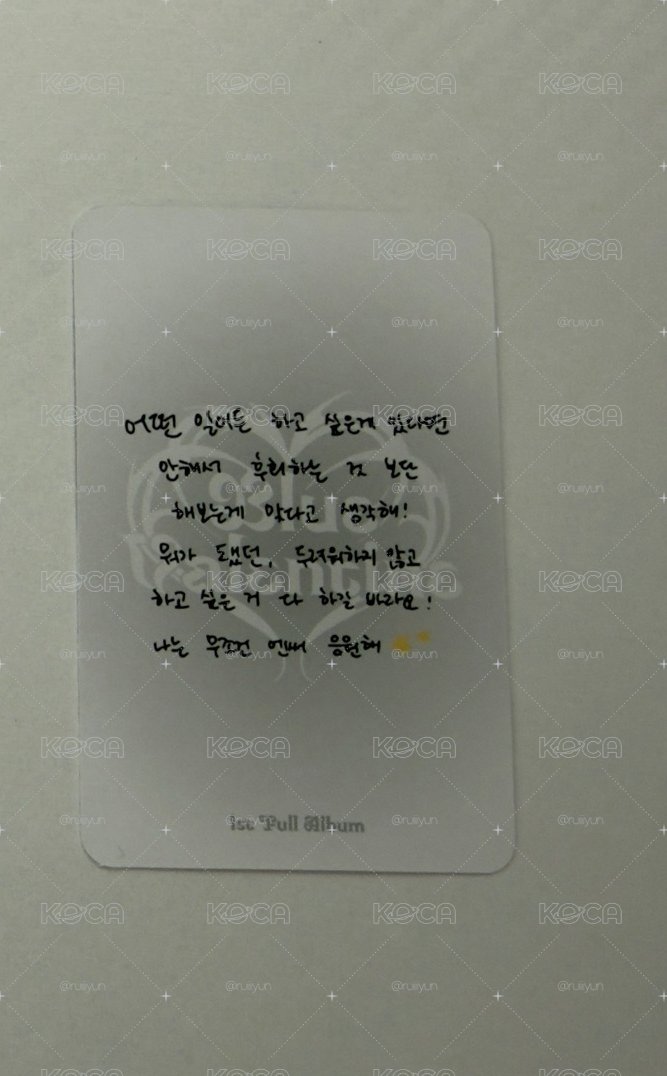 어떤 일이든 하고 싶은게 있다면
안해서 후회하는 것 보단
해보는게 맞다고 생각해!
뭐가 됐던, 두려워하지 않고
하고 싶은 거 다 하길 바라요!
나는 무조건 엔써 응원해
1st Full Album
KOCA
@ruiiyun